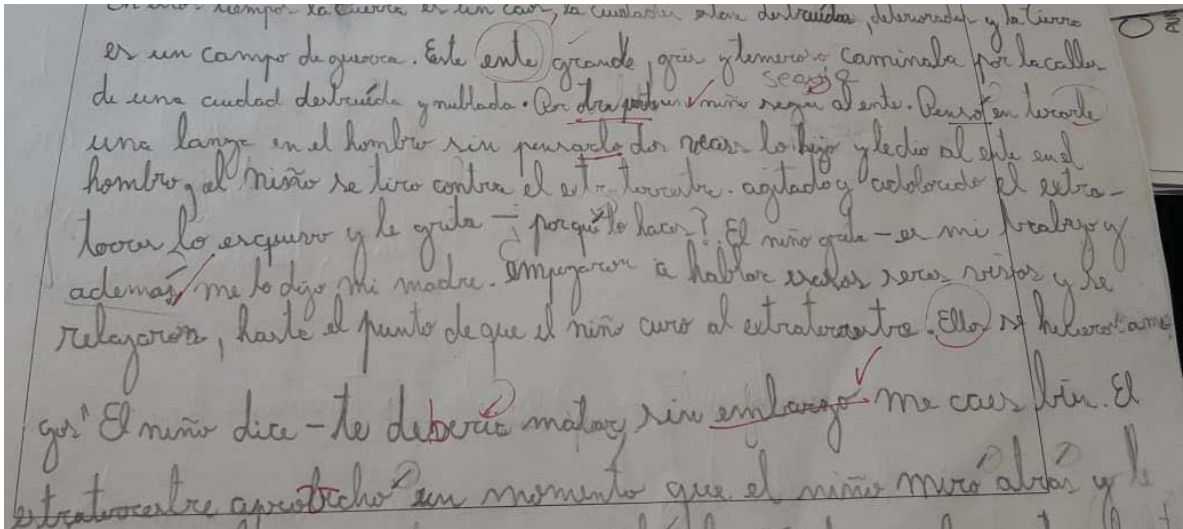 tiempo la Guerra es un caos, la ciudades estan destruidas, deterioradas y la tierra
es un campo de guerra. Este ente grande, gris y temeroso caminaba por la calles
de una ciudad destruída y nublada. Por otra parte un niño seguia al ente. Pensó en tocarle
una lanza en el hombro sin pensarlo dos veces lo hijo y le dio al ente en el
hombro, el niño se tiro contra el extraterrestre. agitado y adolorido el extra-
lo esquivo y le grita - ¿porqué lo haces? El niño grita - es mi trabajo y
además, me lo dijo mi madre. empezaron a hablar estos seres vistos y se
relajaron, hasta el punto de que el niño curo al extraterrestre. Ellos se hicieron ami
gos" El niño dice - te debería matar, sin embargo me caes bien. El
extraterrestre aprobecho un momento que el niño miró atrás y le